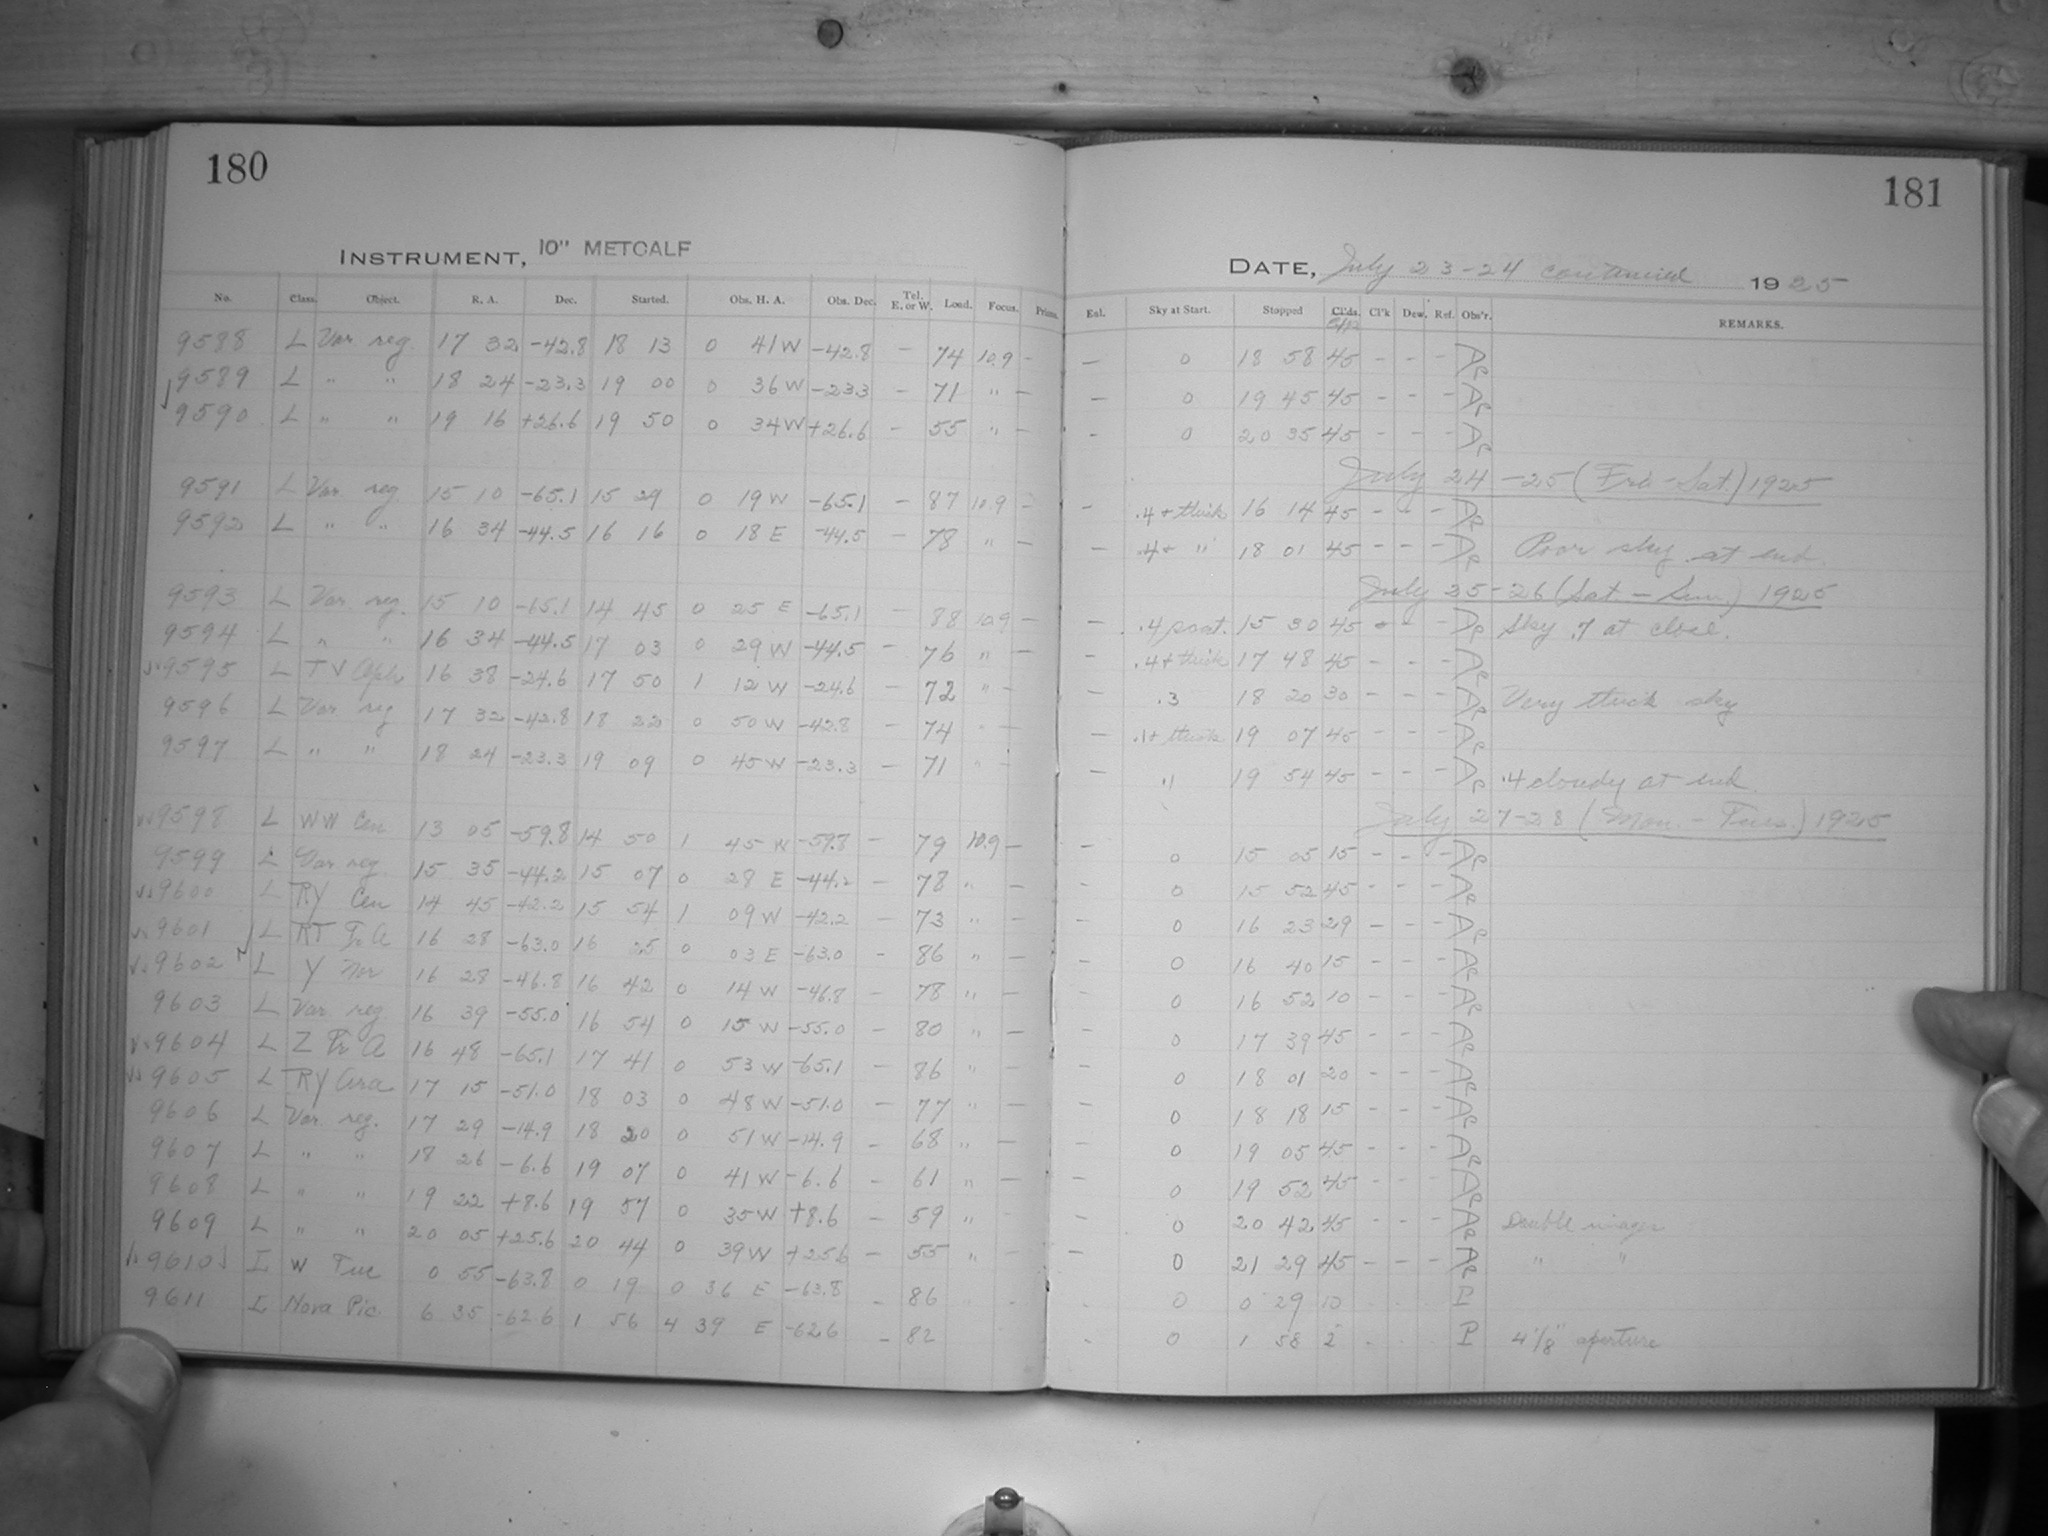 180
INSTRUMENT, 10" METCALF
No. Class. Object. R. A. Dec. Started. Obs. H. A. Obs. Dec. Tel. E. or W. Load. Focus. Prism.
9588 L Var reg. 17 32 -42.8 18 13 0 41 W -42.8 - 74 10.9 -
9589 L " " 18 24 -23.3 19 00 0 36 W -23.3 - 71 " -
9590 L " " 19 16 +26.6 19 50 0 34 W +26.6 - 55 " -
9591 L Var. reg. 15 10 -65.1 15 29 0 19 W -65.1 - 87 10.9 -
9592 L " " 16 34 -44.5 16 16 0 18 E -44.5 - 78 " -
9593 L Var reg. 15 10 -65.1 14 45 0 25 E -65.1 - 88 10.9 -
9594 L " " 16 34 -44.5 17 03 0 29 W -44.5 - 76 " -
9595 L TV Oph 16 38 -24.6 17 50 1 12 W -24.6 - 72 " -
9596 L Var reg 17 32 -42.8 18 22 0 50 W -42.8 - 74 " -
9597 L " " 18 24 -23.3 19 09 0 45 W -23.3 - 71 " -
9598 L WW Cen 13 05 -59.8 14 50 1 45 W -59.8 - 79 10.9 -
9599 L Var reg. 15 35 -44.2 15 07 0 28 E -44.2 - 78 " -
9600 L RY Cen 14 45 -42.2 15 54 1 09 W -42.2 - 73 " -
9601 L RT Tr A 16 28 -63.0 16 25 0 03 E -63.0 - 86 " -
9602 L Y Nor 16 28 -46.8 16 42 0 14 W -46.8 - 78 " -
9603 L Var reg 16 39 -55.0 16 54 0 15 W -55.0 - 80 " -
9604 L Z Tr A 16 48 -65.1 17 41 0 53 W -65.1 - 86 " -
9605 L RY Ara 17 15 -51.0 18 03 0 48 W -51.0 - 77 " -
9606 L Var. reg. 17 29 -14.9 18 20 0 51 W -14.9 - 68 " -
9607 L " " 18 26 -6.6 19 07 0 41 W -6.6 - 61 " -
9608 L " " 19 22 +8.6 19 57 0 35 W +8.6 - 59 " -
9609 L " " 20 05 +25.6 20 44 0 39 W +25.6 - 55 " -
9610 I W Tuc 0 55 -63.8 0 19 0 36 E -63.8 - 86
9611 I Nova Pic. 6 35 -62.6 1 56 4 39 E -62.6 - 82
181
DATE, July 23-24 continued 1925
Enl. Sky at Start. Stopped Cl'ds. Cl'k Dew. Ref. Obs'r. REMARKS.
- 0 18 58 45 - - -
- 0 19 45 45 - - -
- 0 20 35 45 - - -
July 24-25 (Fri-Sat.) 1925
- .4+ thick 16 14 45 - - -
- .4+ " 18 01 45 - - - Poor sky at end.
July 25-26 (Sat.-Sun.) 1925
- 15 30 45 - - Sky .7 at close.
- .4+ thick 17 48 45 - - -
- .3 18 20 30 - - - Very thick sky
- .1+ thick 19 07 45 - - -
- .1 19 54 45 - - - .4 cloudy at end.
July 27-28 (Mon.-Tues.) 1925
- 0 15 05 15 - - -
- 0 15 52 45 - - -
- 0 16 23 29 - - -
- 0 16 40 15 - - -
- 0 16 52 10 - - -
- 0 17 39 45 - - -
- 0 18 01 20 - - -
- 0 18 18 15 - - -
- 0 19 05 45 - - -
- 0 19 52 45 - - -
- 0 20 42 45 - - - Double images
- 0 21 29 45 - - - " "
0 0 29 10
- 0 1 58 2 4 1/8" aperture